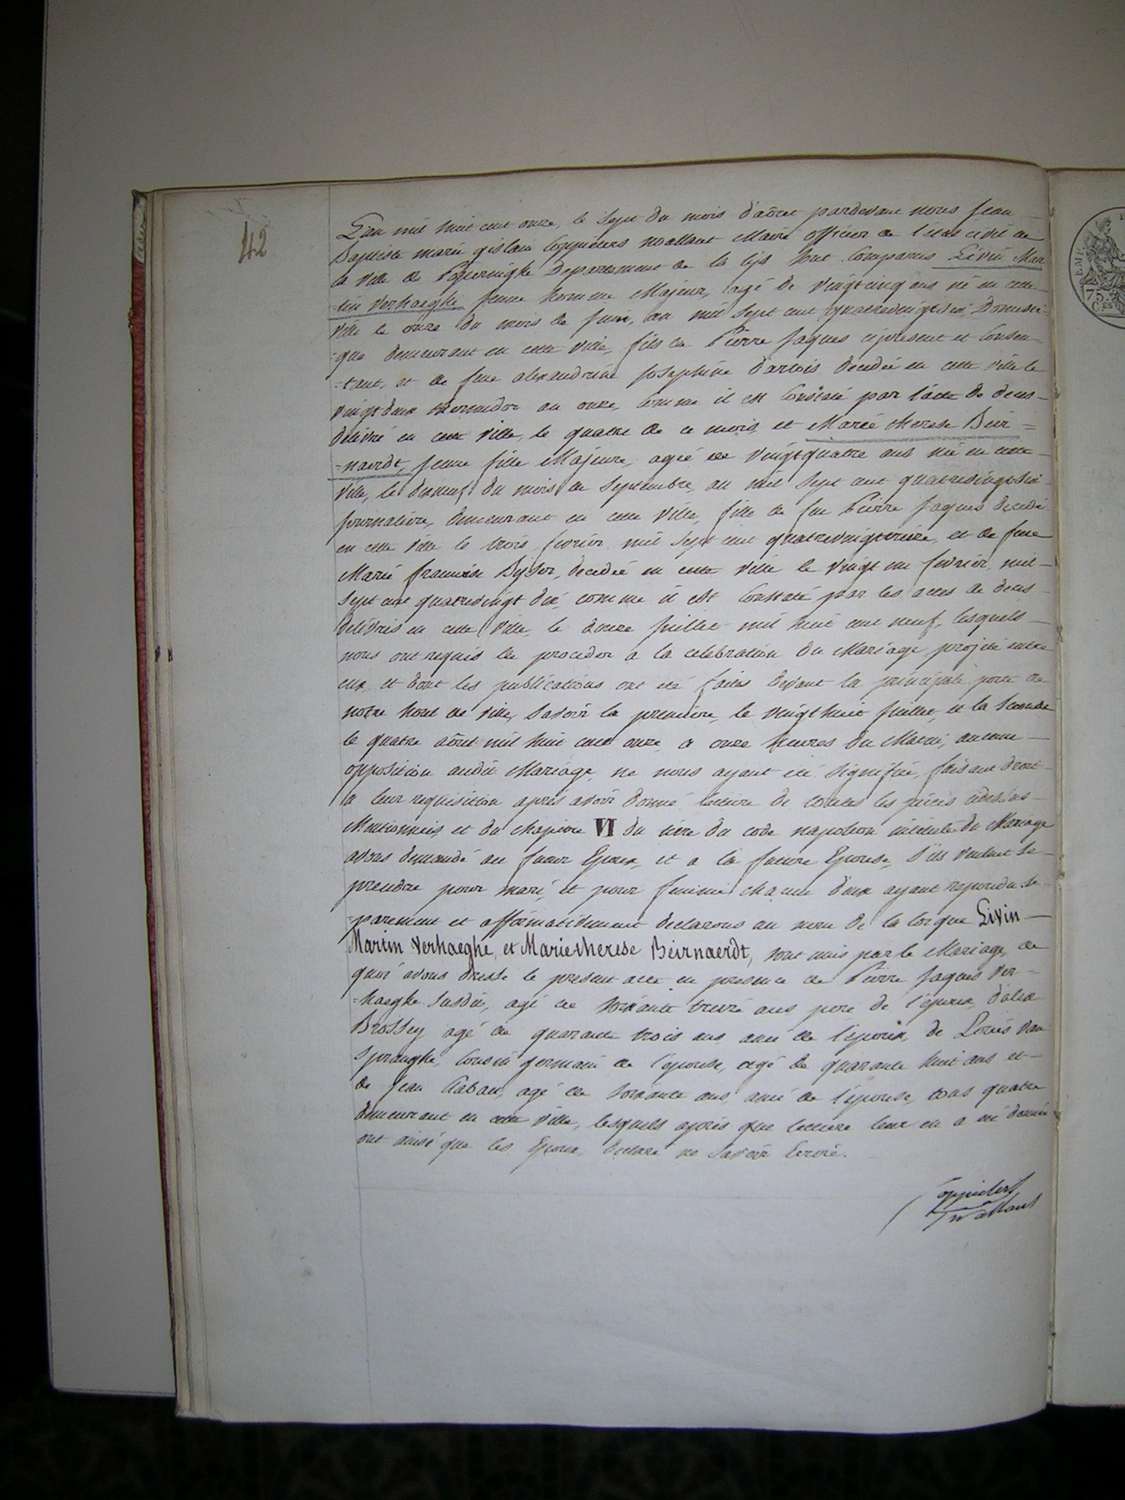 42
L'an mil huit cent onze, le sept du mois d'août pardevant nous Jean
Baptiste marie gislain Coppieters Wallant Maire officier de l'etat civil de
la ville de Poperinghe Departement de la Lys sont Comparus Livin Mar
=tin Verhaeghe Jeune homme Majeur, agé de vingtcinq ans né en cette
ville le onze du mois de Juin, an mil sept cent quatrevingt six, Domesti-
que demeurant en cette ville, fils de Pierre Jaques ci present et Consen-
-tant, et de feue alexandrine Josephine Dartois decedée en cette ville le
vingt deux thermidor an onze, Comme il est Constaté par l'acte de deces-
delivré en cette ville, le quatre de ce mois, et Marie therese Beir=
=naerdt, Jeune fille Majeure, agée de vingtquatre ans née en cette
ville, le du mois de Septembre, an mil sept cent quatrevingt six
Journaliere, demeurant en cette ville, fille de feu Pierre Jaques decedé
en cette ville le trois fevrier mil sept cent quatrevingttreize, et de feue
Marie francoise decedée en cette ville le vingt un fevrier, mil-
sept cent quatrevingt dix comme il est Constaté par les actes de deces-
delivrés en cette ville, le douze Juillet mil huit cent neuf, lesquels-
nous ont requis de proceder a la celebration du Mariage projeté entre
eux, et dont les publications ont été faites devant la principale porte de
notre hotel de ville, Savoir la premiere, le vingthuit Juillet, et la Seconde
le quatre août mil huit cent onze a onze heures du Matin, aucune-
opposition audit Mariage, ne nous ayant été Signifiée, faisant droit-
a leur requisition apres avoir donné lecture de toutes les pieces cidessus-
Mentionnées et du chapitre VI du titre du code napoleon intitulé du Mariage
avons demandé au futur Epoux, et a la future Epouse, S'ils veulent se-
prendre pour mari, et pour femme chacun d'eux ayant repondu se-
-parement et affirmativement declarons au nom de la loi que Livin-
Martin Verhaeghe, et Marie therese Beirnaerdt, sont unis par le Mariage, de
quoi avons dressé le present acte en presence de Pierre Jaques Ver-
-haeghe susdit, agé de soixante treize ans pere de l'epoux, d'alex
Brossey agé de quarante trois ans ami de l'epoux, de Louis Van
Spranghe, Cousin germain de l'epouse, agé de quarante huit ans et-
de Jean Caban, agé de soixante ans ami de l'epouse, tous quatre
demeurant en cette ville, lesquels après que lecture leur en a été donnée
ont ainsi que les Epoux, declaré ne Savoir Ecrire.
Coppieters
Wallant